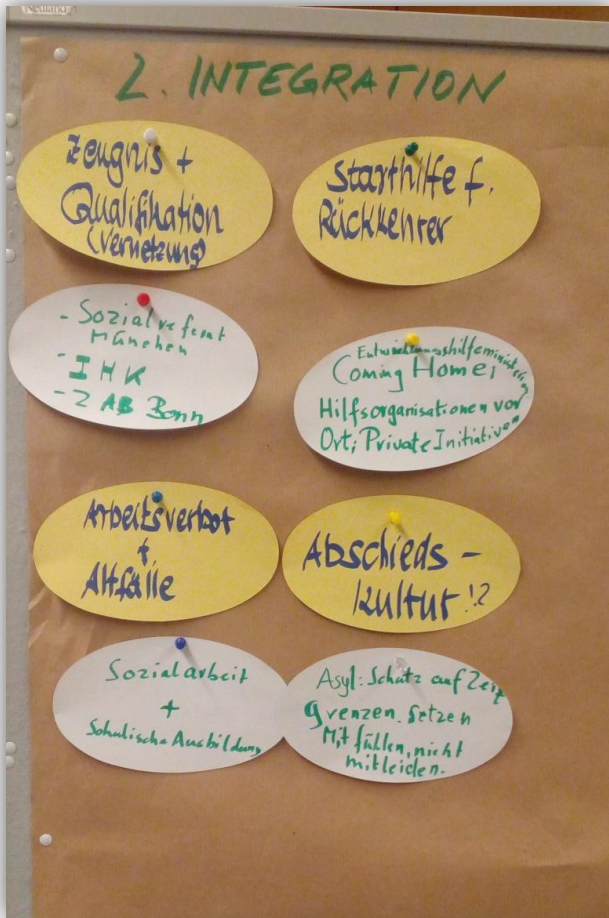 2. INTEGRATION
Zeugnis +
Qualifikation
(Vernetzung)
Starthilfe f.
Rückkehrer
- Sozialreferat
München
- IHK
- ZAB Bonn
Entwicklungshilfeministerium
Coming Home;
Hilfsorganisationen vor
Ort; Private Initiativen
Arbeitsverbot
+
Altfälle
Abschieds-
kultur!?
Sozialarbeit
+
Schulische Ausbildung
Asyl: Schutz auf Zeit
Grenzen setzen
Mitfühlen, nicht
mitleiden.